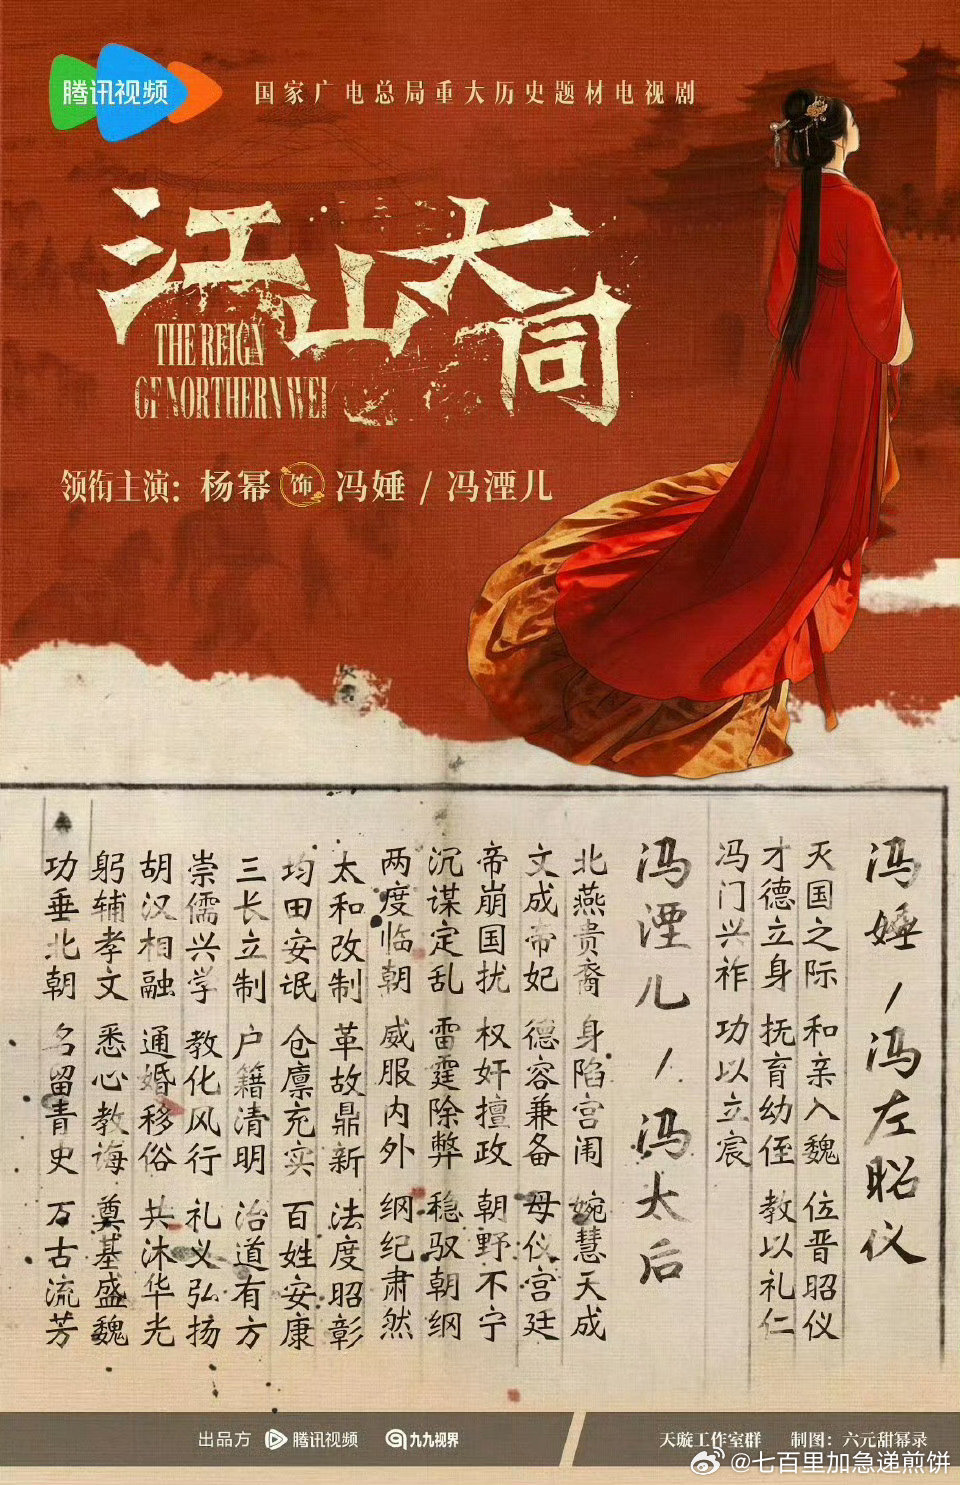 腾讯视频
国家广电总局重大历史题材电视剧
江山大同
THE REIGN
OF NORTHERN WEI
领衔主演：杨幂 饰 冯娷 / 冯湮儿
冯娷 / 冯左昭仪
灭国之际 和亲入魏 位晋昭仪
才德立身 抚育幼侄 教以礼仁
冯门兴祚 功以立宸
冯湮儿 / 冯太后
北燕贵裔 身陷宫闱 婉慧天成
文成帝妃 德容兼备 母仪宫廷
帝崩国扰 权奸擅政 朝野不宁
沉谋定乱 雷霆除弊 稳驭朝纲
两度临朝 威服内外 纲纪肃然
太和改制 革故鼎新 法度昭彰
均田安氓 仓廪充实 百姓安康
三长立制 户籍清明 治道有方
崇儒兴学 教化风行 礼义弘扬
胡汉相融 通婚移俗 共沐华光
躬辅孝文 悉心教诲 奠基盛魏
功垂北朝 名留青史 万古流芳
出品方 腾讯视频 九九视界
天璇工作室群 制图：六元甜幂录
@七百里加急递煎饼